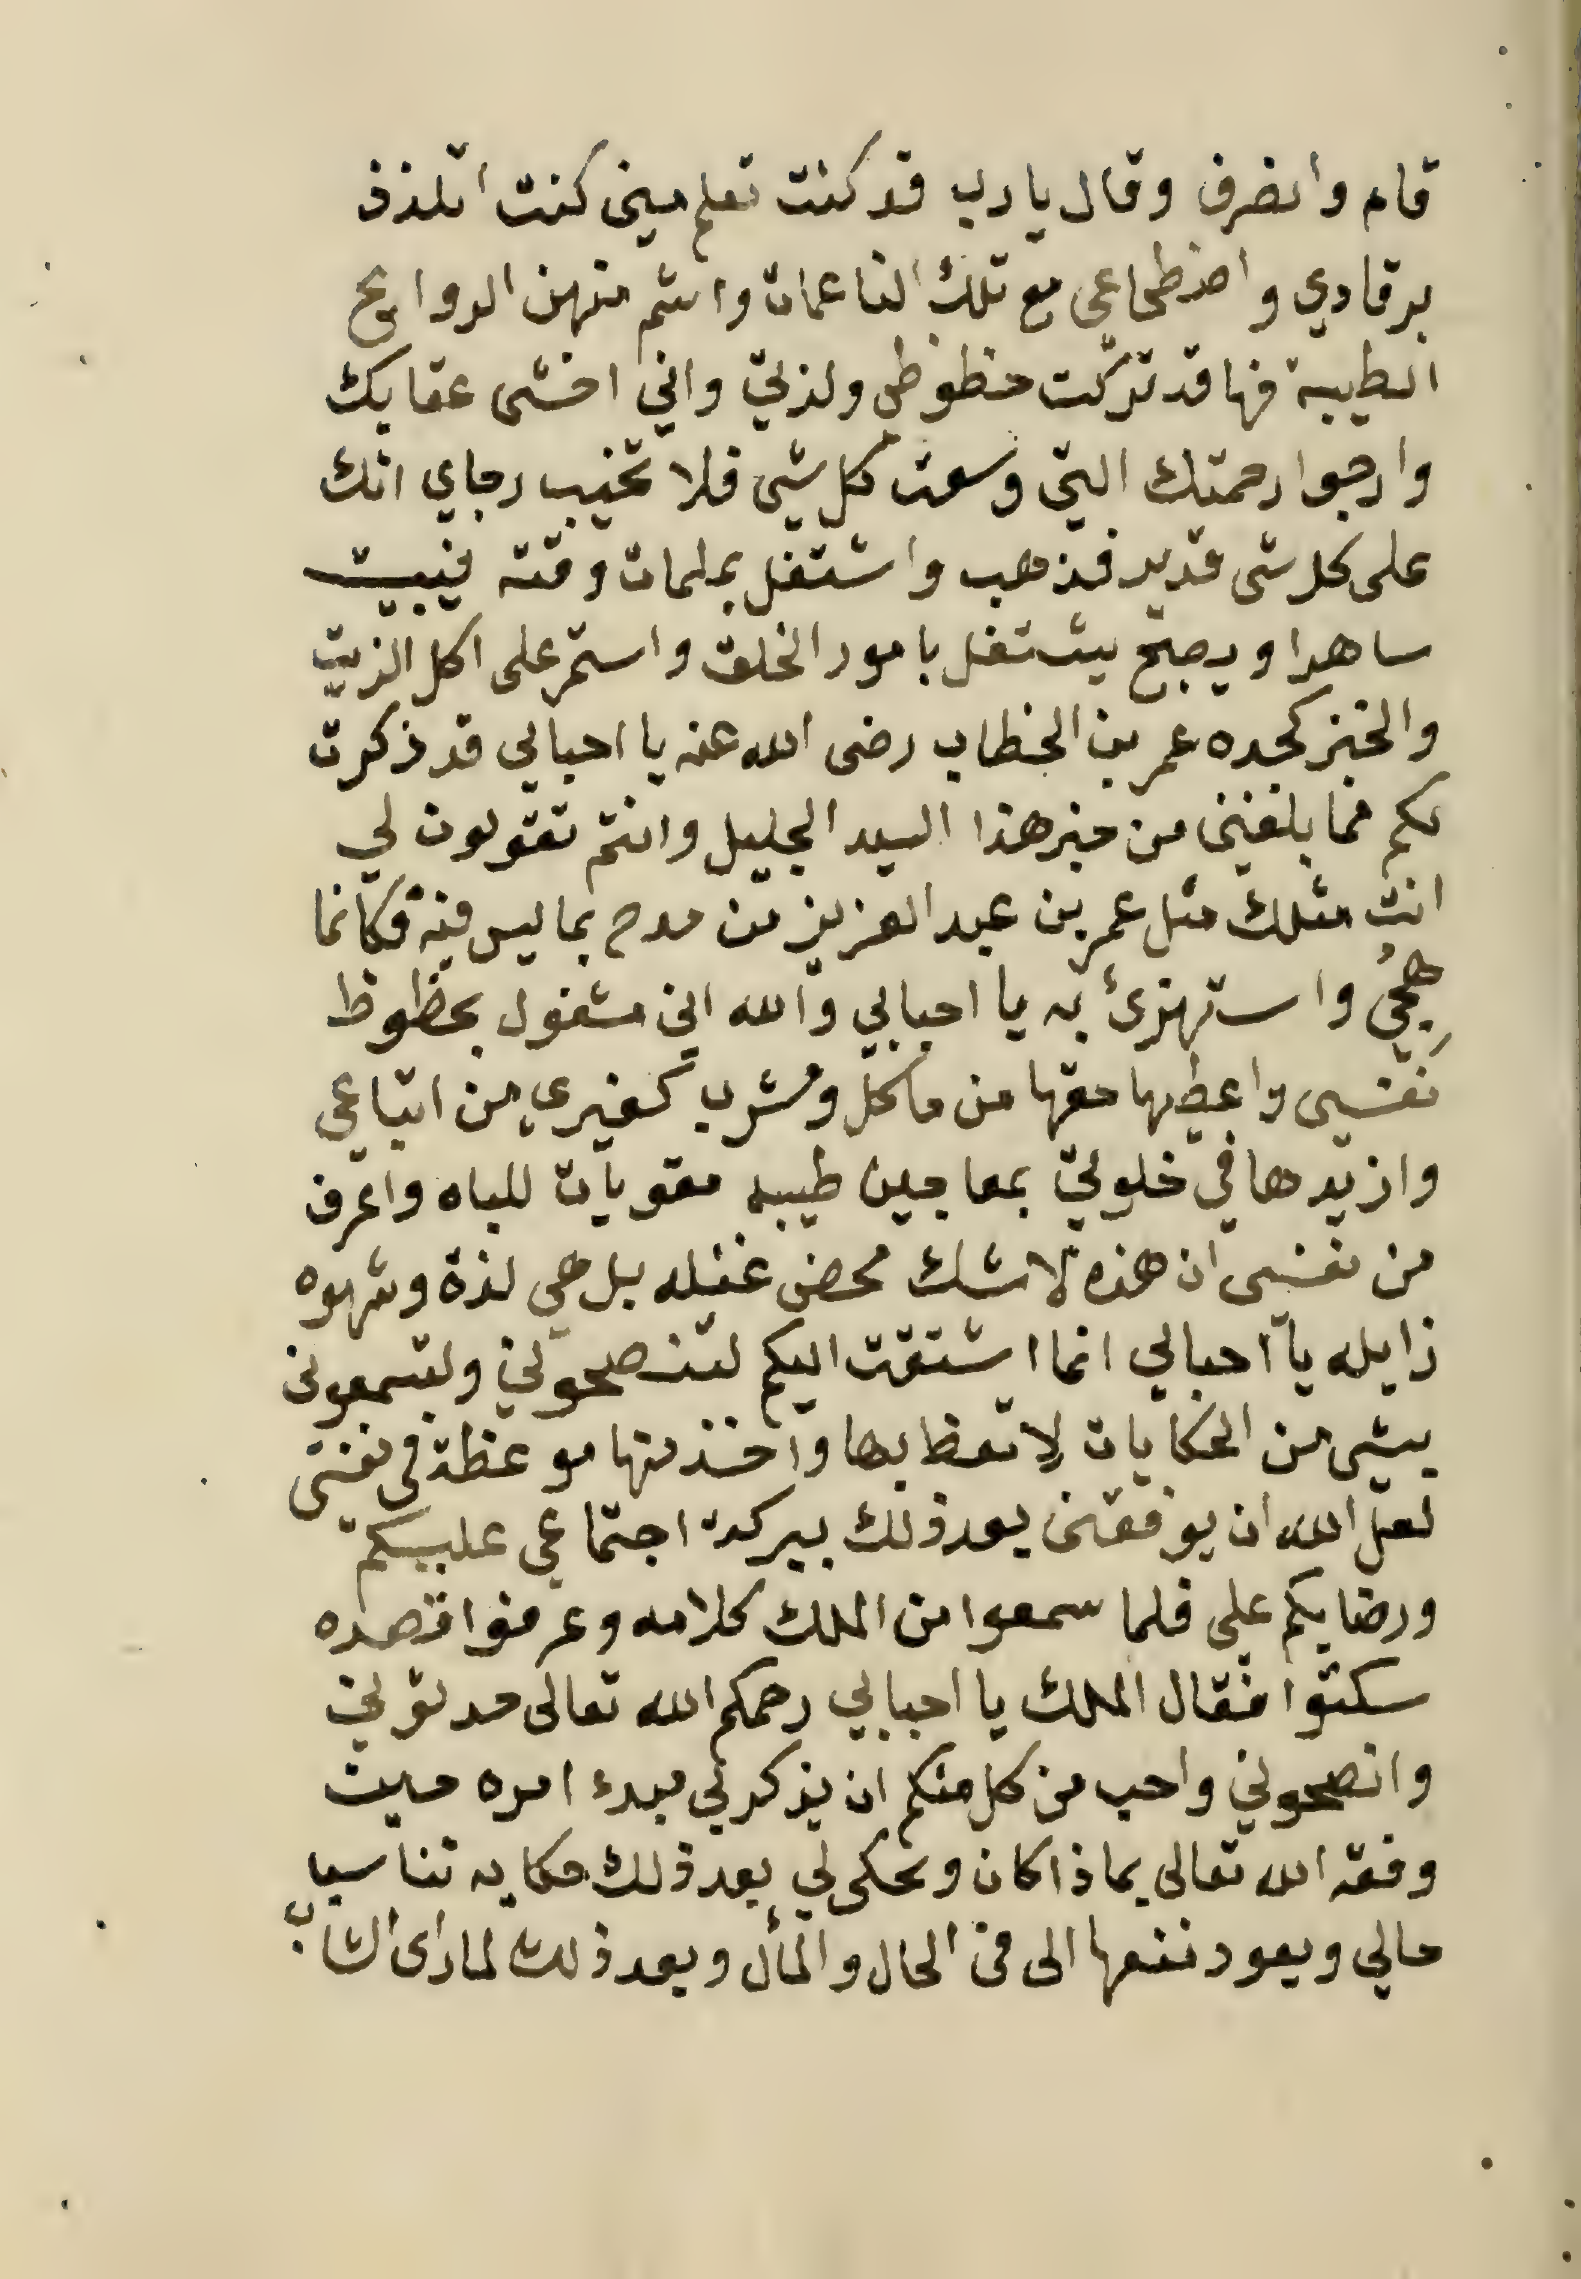 قام وانصرف وقال يا رب قد كنت تعلم مني كنت اتلذذ
برقادي واضطجاعي مع تلك الناعمات واشم منهن الروايح
الطيبة فها قد تركت حظوظي ولذتي واني اخشى عقابك
وارجوا رحمتك التي وسعت كل شي فلا تخيب رجاي انك
على كل شى قدير فذهب واشتغل بملمات وقته فيبيت
ساهدا ويصبح يشتغل بامور الخلق واستمر على اكل الزيت
والخبز كجده عمر بن الخطاب رضى الله عنه يا احبابي قد ذكرت
لكم مما بلغني من خبر هذا السيد الجليل وانتم تقولون لي
انت مثلك مثل عمر بن عبد العزيز من مدح بما ليس فيه فكانما
هجي واستهزئ به يا احبابي والله اني مشغول بحظوظ
نفسي واعطيها حقها من ماكل ومشرب كغيري من اتباعي
وازيدها في خلوتي بمعاجين طيبه مقويات للباه واعرف
من نفسى ان هذه لا شك محض غفله بل هي لذة وشهوه
زايله يا احبابي انما اشتقت اليكم لتنصحوني ولتسمعوني
بشي من الحكايات لاتعظ بها واخذ منها موعظة في نفسي
لعل الله ان يوفقني بعد ذلك ببركة اجتماعي عليكم
ورضايكم علي فلما سمعوا من الملك كلامه وعرفوا قصده
سكتوا فقال الملك يا احبابي رحمكم الله تعالى حدثوني
وانصحوني واحب من كل منكم ان يذكر لي مبدء امره حيث
وفقه الله تعالى بماذا كان ويحكى لي بعد ذلك حكايه تناسب
حالي ويعود نفعها الى في الحال والمأل وبعد ذلك لما راى الشاب